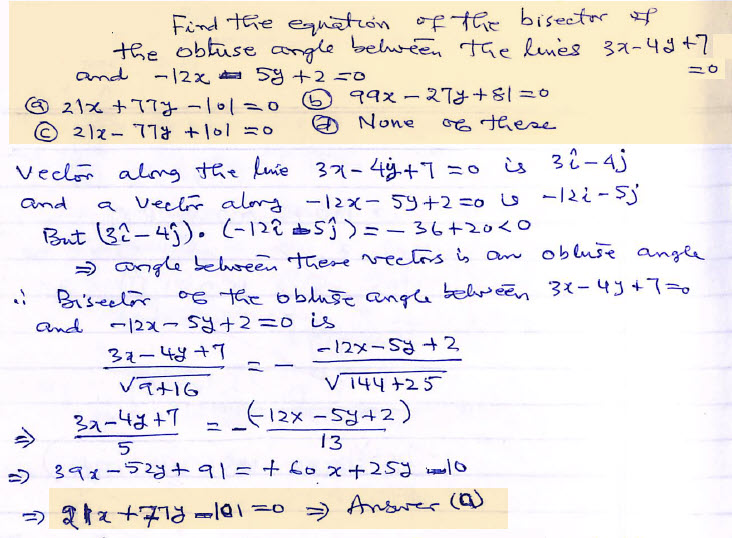 Find the equation of the bisector of
the obtuse angle between the lines 3x-4y+7
=0
and -12x - 5y+2=0
(a) 21x+77y-101=0 (b) 99x-27y+81=0
(c) 21x-77y+101=0 (d) None of these
Vector along the line 3x-4y+7=0 is 3î-4j
and a vector along -12x-5y+2=0 is -12i-5j
But (3î-4ĵ).(-12î-5ĵ)=-36+20<0
⇒ angle between these vectors is an obtuse angle
∴ Bisector of the obtuse angle between 3x-4y+7=0
and -12x-5y+2=0 is
(3x-4y+7)/√(9+16) = - (-12x-5y+2)/√(144+25)
⇒ (3x-4y+7)/5 = -(-12x-5y+2)/13
⇒ 39x-52y+91=+60x+25y-10
⇒ 21x+77y-101=0 ⇒ Answer (a)